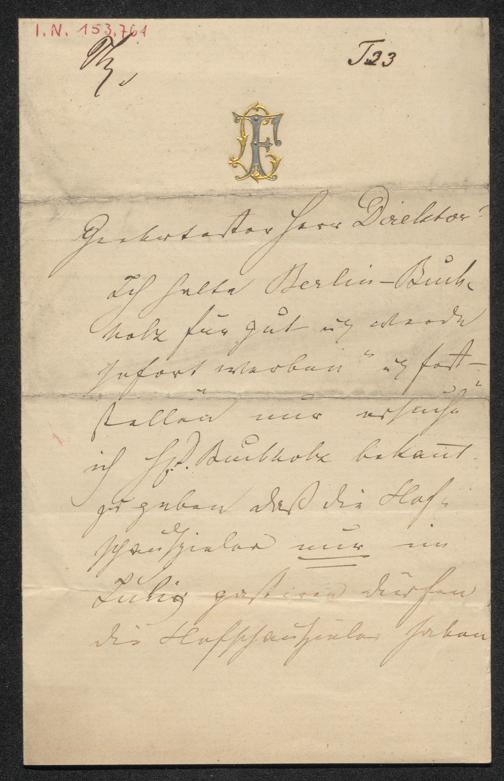 I.N. 153.761
J.23
Geehrtester Herr Direktor!
Ich halte Berlin-Buch-
holz für gut u werde
sofort werben u fest-
stellen nur ersuche
ich H. Buchholz bekannt
zu geben daß die Hof-
schauspieler nur im
Juli gastiren dürfen
die Hofschauspieler haben